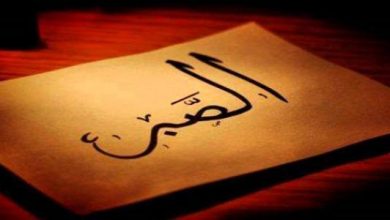 الصبر